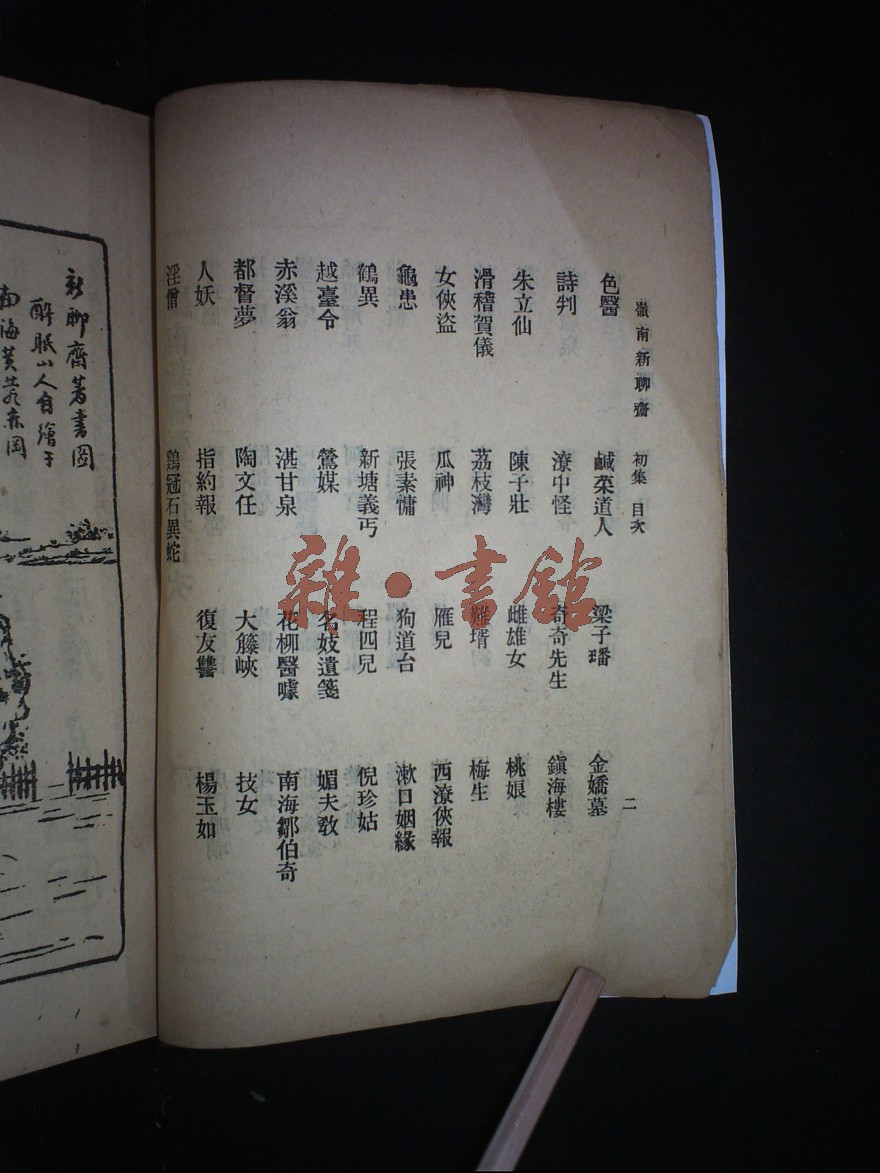 嶺南新聊齋 初集 目次 二
色醫 鹹菜道人 梁子璠 金嬌墓
詩判 潦中怪 奇奇先生 鎮海樓
朱立仙 陳子壯 雌雄女 桃娘
滑稽賀儀 荔枝灣 雞壻 梅生
女俠盜 瓜神 雁兒 西潦俠報
龜患 張素慵 狗道台 漱口姻緣
鶴異 新塘義丐 程四兒 倪珍姑
越臺令 鶯媒 名妓遺箋 媚夫教
赤溪翁 湛甘泉 花柳醫噱 南海鄒伯奇
都督夢 陶文任 大籐峽 技女
人妖 指約報 復友讐 楊玉如
淫僧 鷄冠石異蛇
新聊齋著書圖
醉眠山人自繪于
南海黃
雜·書館